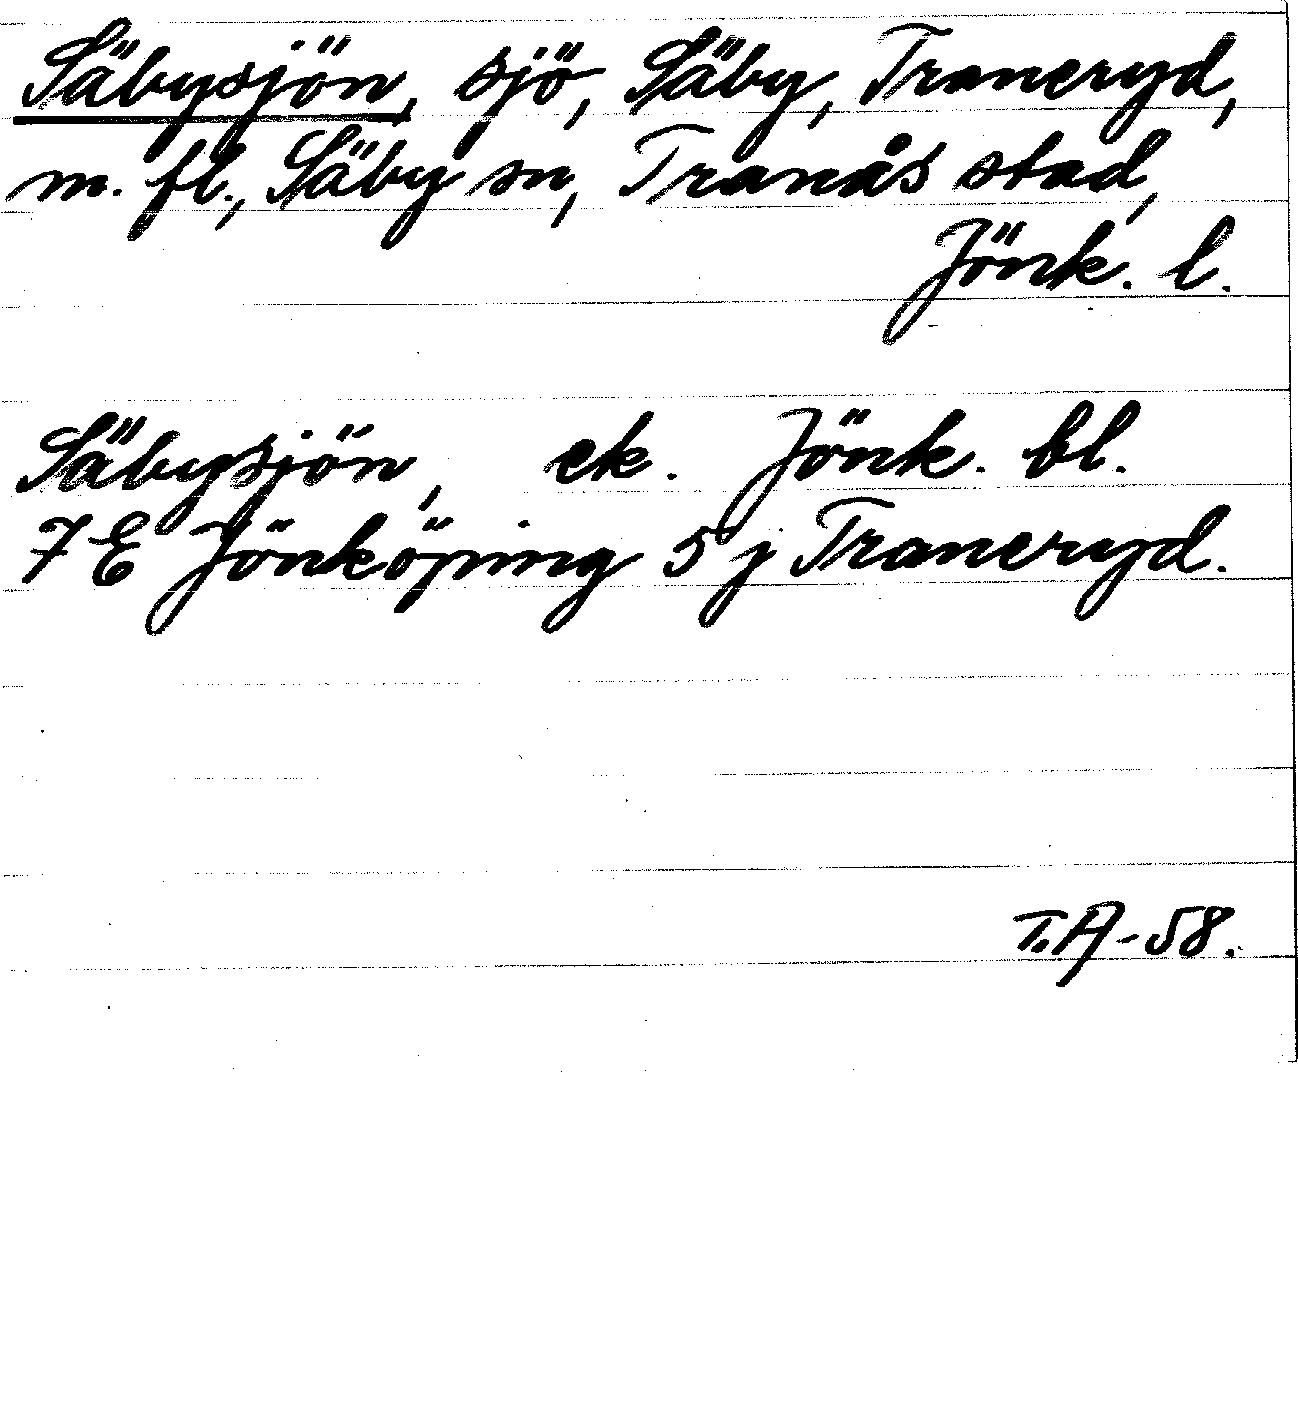 Säbysjön, sjö, Säby, Traneryd,
m. fl., Säby sn, Tranås stad,
Jönk. l.
Säbysjön, ek. Jönk. bl.
7 E Jönköping 5 j Traneryd.
T.A-58.